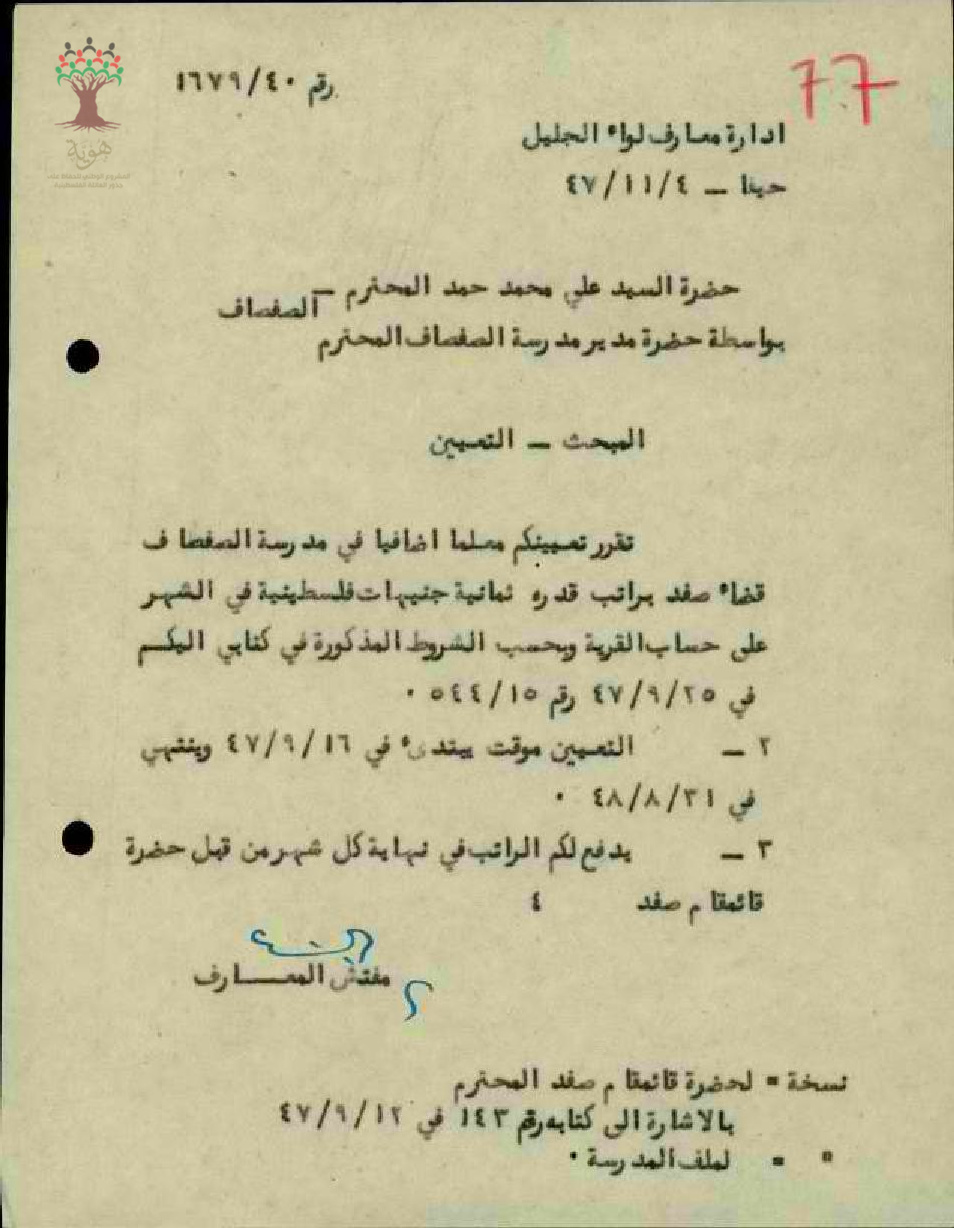 رقم ١٦٧٩/٤٠
77
ادارة معارف لواء الجليل
حيفا – ٤٧/١١/٤
حضرة السيد علي محمد حمد المحترم – الصفصاف
بواسطة حضرة مدير مدرسة الصفصاف المحترم
المبحث – التعيين
تقرر تعيينكم معلما اضافيا في مدرسة الصفصاف
قضاء صفد براتب قدره ثمانية جنيهات فلسطينية في الشهر
على حساب القرية وبحسب الشروط المذكورة في كتابي اليكم
في ٤٧/٩/٢٥ رقم ٥٤٤/١٥ ٠
٢ – التعيين موقت يبتدىء في ٤٧/٩/١٦ وينتهي
في ٤٨/٨/٣١ ٠
٣ – يدفع لكم الراتب في نهاية كل شهر من قبل حضرة
قائمقام صفد ٤
مفتش المعــــارف
نسخة = لحضرة قائمقام صفد المحترم
بالاشارة الى كتابه رقم ١٤٣ في ٤٧/٩/١٢
" = لملف المدرسة ٠
هوية